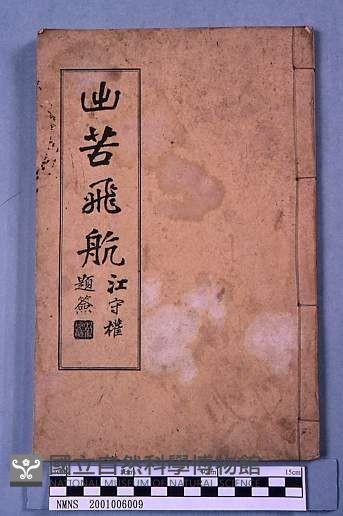 出苦飛航
江守權
題簽
國立自然科學博物館
NATIONAL MUSEUM OF NATURAL SCIENCE
15cm
NMNS 2001006009